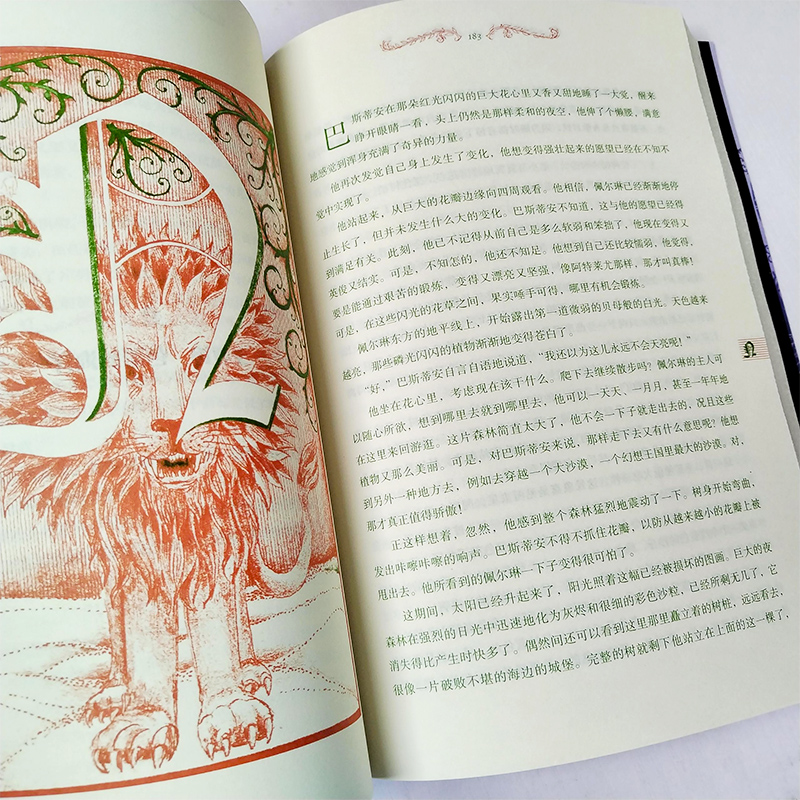 N
183
巴斯蒂安在那朵红光闪闪的巨大花心里又香又甜地睡了一大觉,醒来
睁开眼睛一看,头上仍然是那样柔和的夜空,他伸了个懒腰,满意
地感觉到浑身充满了奇异的力量。
他再次发觉自己身上发生了变化,他想变得强壮起来的愿望已经在不知不
觉中实现了。
他站起来,从巨大的花瓣边缘向四周观看。他相信,佩尔琳已经渐渐地停
止生长了,但并未发生什么大的变化。巴斯蒂安不知道,这与他的愿望已经得
到满足有关。此刻,他已不记得从前自己是多么软弱和笨拙了,他现在变得又
英俊又结实。可是,不知怎的,他还不知足。他想到自己还比较懦弱,他觉得,
要是能通过艰苦的锻炼,变得又漂亮又坚强,像阿特莱尤那样,那才叫真棒!
可是,在这些闪光的花草之间,果实唾手可得,哪里有机会锻炼。
佩尔琳东方的地平线上,开始露出第一道微弱的贝母般的白光。天色越来
越亮,那些磷光闪闪的植物渐渐地变得苍白了。
“好,”巴斯蒂安自言自语地说道,“我还以为这儿永远不会天亮呢!”
他坐在花心里,考虑现在该干什么。爬下去继续散步吗?佩尔琳的主人可
以随心所欲,想到哪里去就到哪里去,他可以一天天、一月月,甚至一年年地
在这里来回游逛。这片森林简直太大了,他不会一下子就走出去的,况且这些
植物又那么美丽。可是,对巴斯蒂安来说,那样走下去又有什么意思呢?他想
到另外一种地方去,例如去穿越一个大沙漠,一个幻想王国里最大的沙漠。对,
那才真正值得骄傲!
正这样想着,忽然,他感到整个森林猛烈地震动了一下。树身开始弯曲,
发出咔嚓咔嚓的响声。巴斯蒂安不得不抓住花瓣,以防从越来越小的花瓣上被
甩出去。他所看到的佩尔琳一下子变得很可怕了。
这期间,太阳已经升起来了,阳光照着这幅已经被损坏的图画。巨大的夜
森林在强烈的日光中迅速地化为灰烬和很细的彩色沙粒,已经所剩无几了,它
消失得比产生时快多了。偶然间还可以看到这里那里矗立着的树桩,远远看去,
很像一片破败不堪的海边的城堡。完整的树就剩下他站立在上面的这一棵了,
N